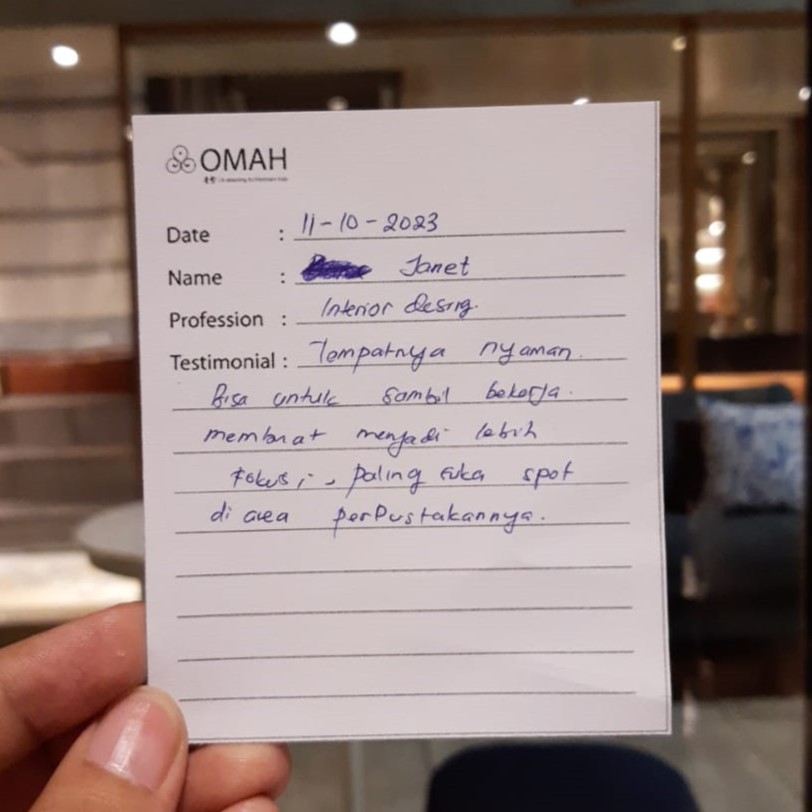 OMAH
Date : 11-10-2023
Name : Janet
Profession : Interior Desing.
Testimonial : Tempatnya nyaman.
Bisa untuk sambil bekerja.
membuat menjadi lebih
fokus, paling suka spot
di area perpustakannya.